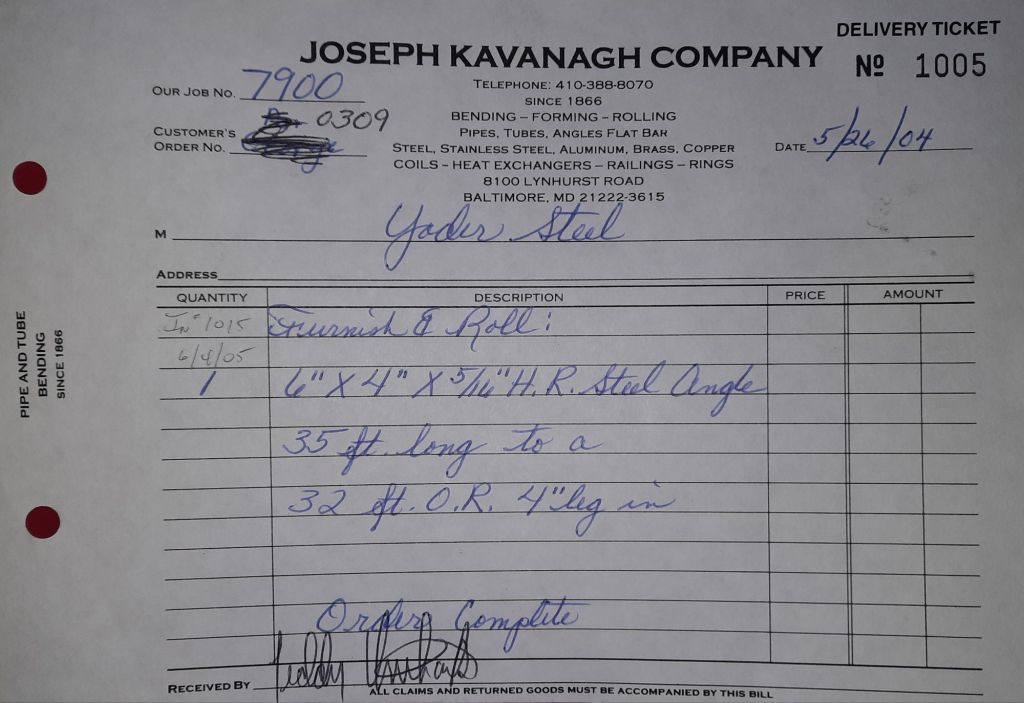 DELIVERY TICKET
JOSEPH KAVANAGH COMPANY
Nº 1005
OUR JOB NO. 7900
TELEPHONE: 410-388-8070
SINCE 1866
BENDING – FORMING – ROLLING
PIPES, TUBES, ANGLES FLAT BAR
STEEL, STAINLESS STEEL, ALUMINUM, BRASS, COPPER
COILS – HEAT EXCHANGERS – RAILINGS – RINGS
8100 LYNHURST ROAD
BALTIMORE, MD 21222-3615
0309
CUSTOMER'S
ORDER NO.
DATE 5/26/04
M Yoder Steel
ADDRESS
QUANTITY DESCRIPTION PRICE AMOUNT
IN# 1015 Furnish & Roll:
6/4/05
1 6" X 4" X 5/16" H.R. Steel Angle
35 ft. long to a
32 ft. O.R. 4" leg in
Order Complete
RECEIVED BY Teddy
ALL CLAIMS AND RETURNED GOODS MUST BE ACCOMPANIED BY THIS BILL
PIPE AND TUBE
BENDING
SINCE 1866